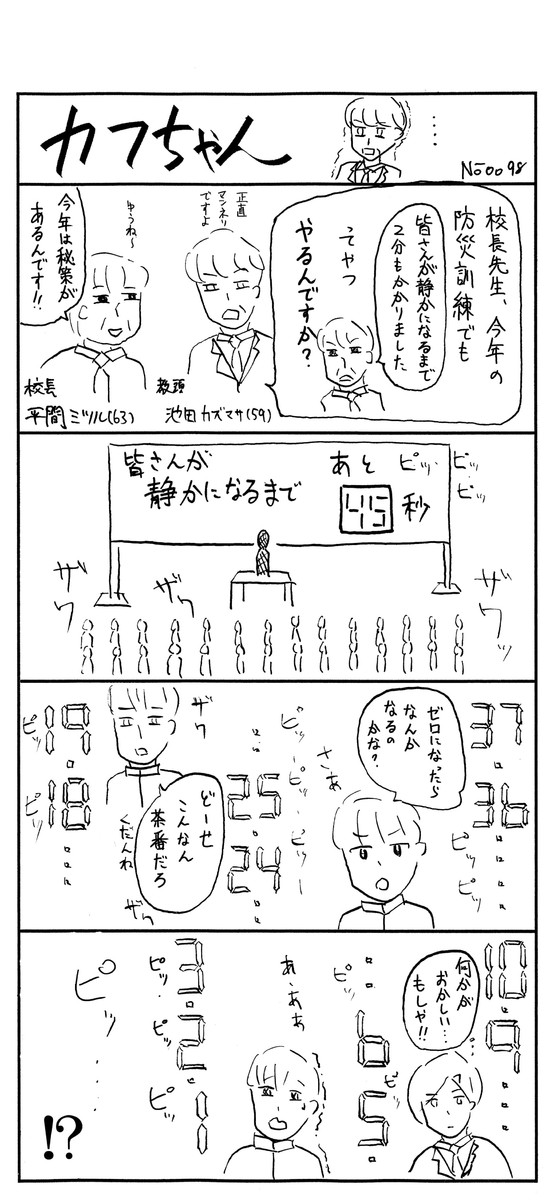 カフちゃん
・・・
No0098
校長先生、今年の
防災訓練でも
皆さんが静かになるまで
2分もかかりました
ってやつ
やるんですか？
正直
マンネリ
ですよ
教頭
池田カズマサ(59)
ゆうね〜
今年は秘策が
あるんです!!
校長
平間ミツル(63)
皆さんが
静かになるまで
あと
45
秒
ピッ
ピッ
ピッ
ザワ
ザワ
ザワッ
37
36
ピッ
ピッ
ゼロになったら
なんか
なるの
かな？
さぁ
ピッ
ピッ
ピッ
25
24
ザワ
どーせ
こんなん
茶番だろ
くだんね
ザワ
19
18
ピッ
ピッ
10
9
何かが
おかしい…
もしや!!
ピッ
ピッ
6
5
あ、ああ
3
2
1
ピッ
ピッ
ピッ
ピッ…
!?